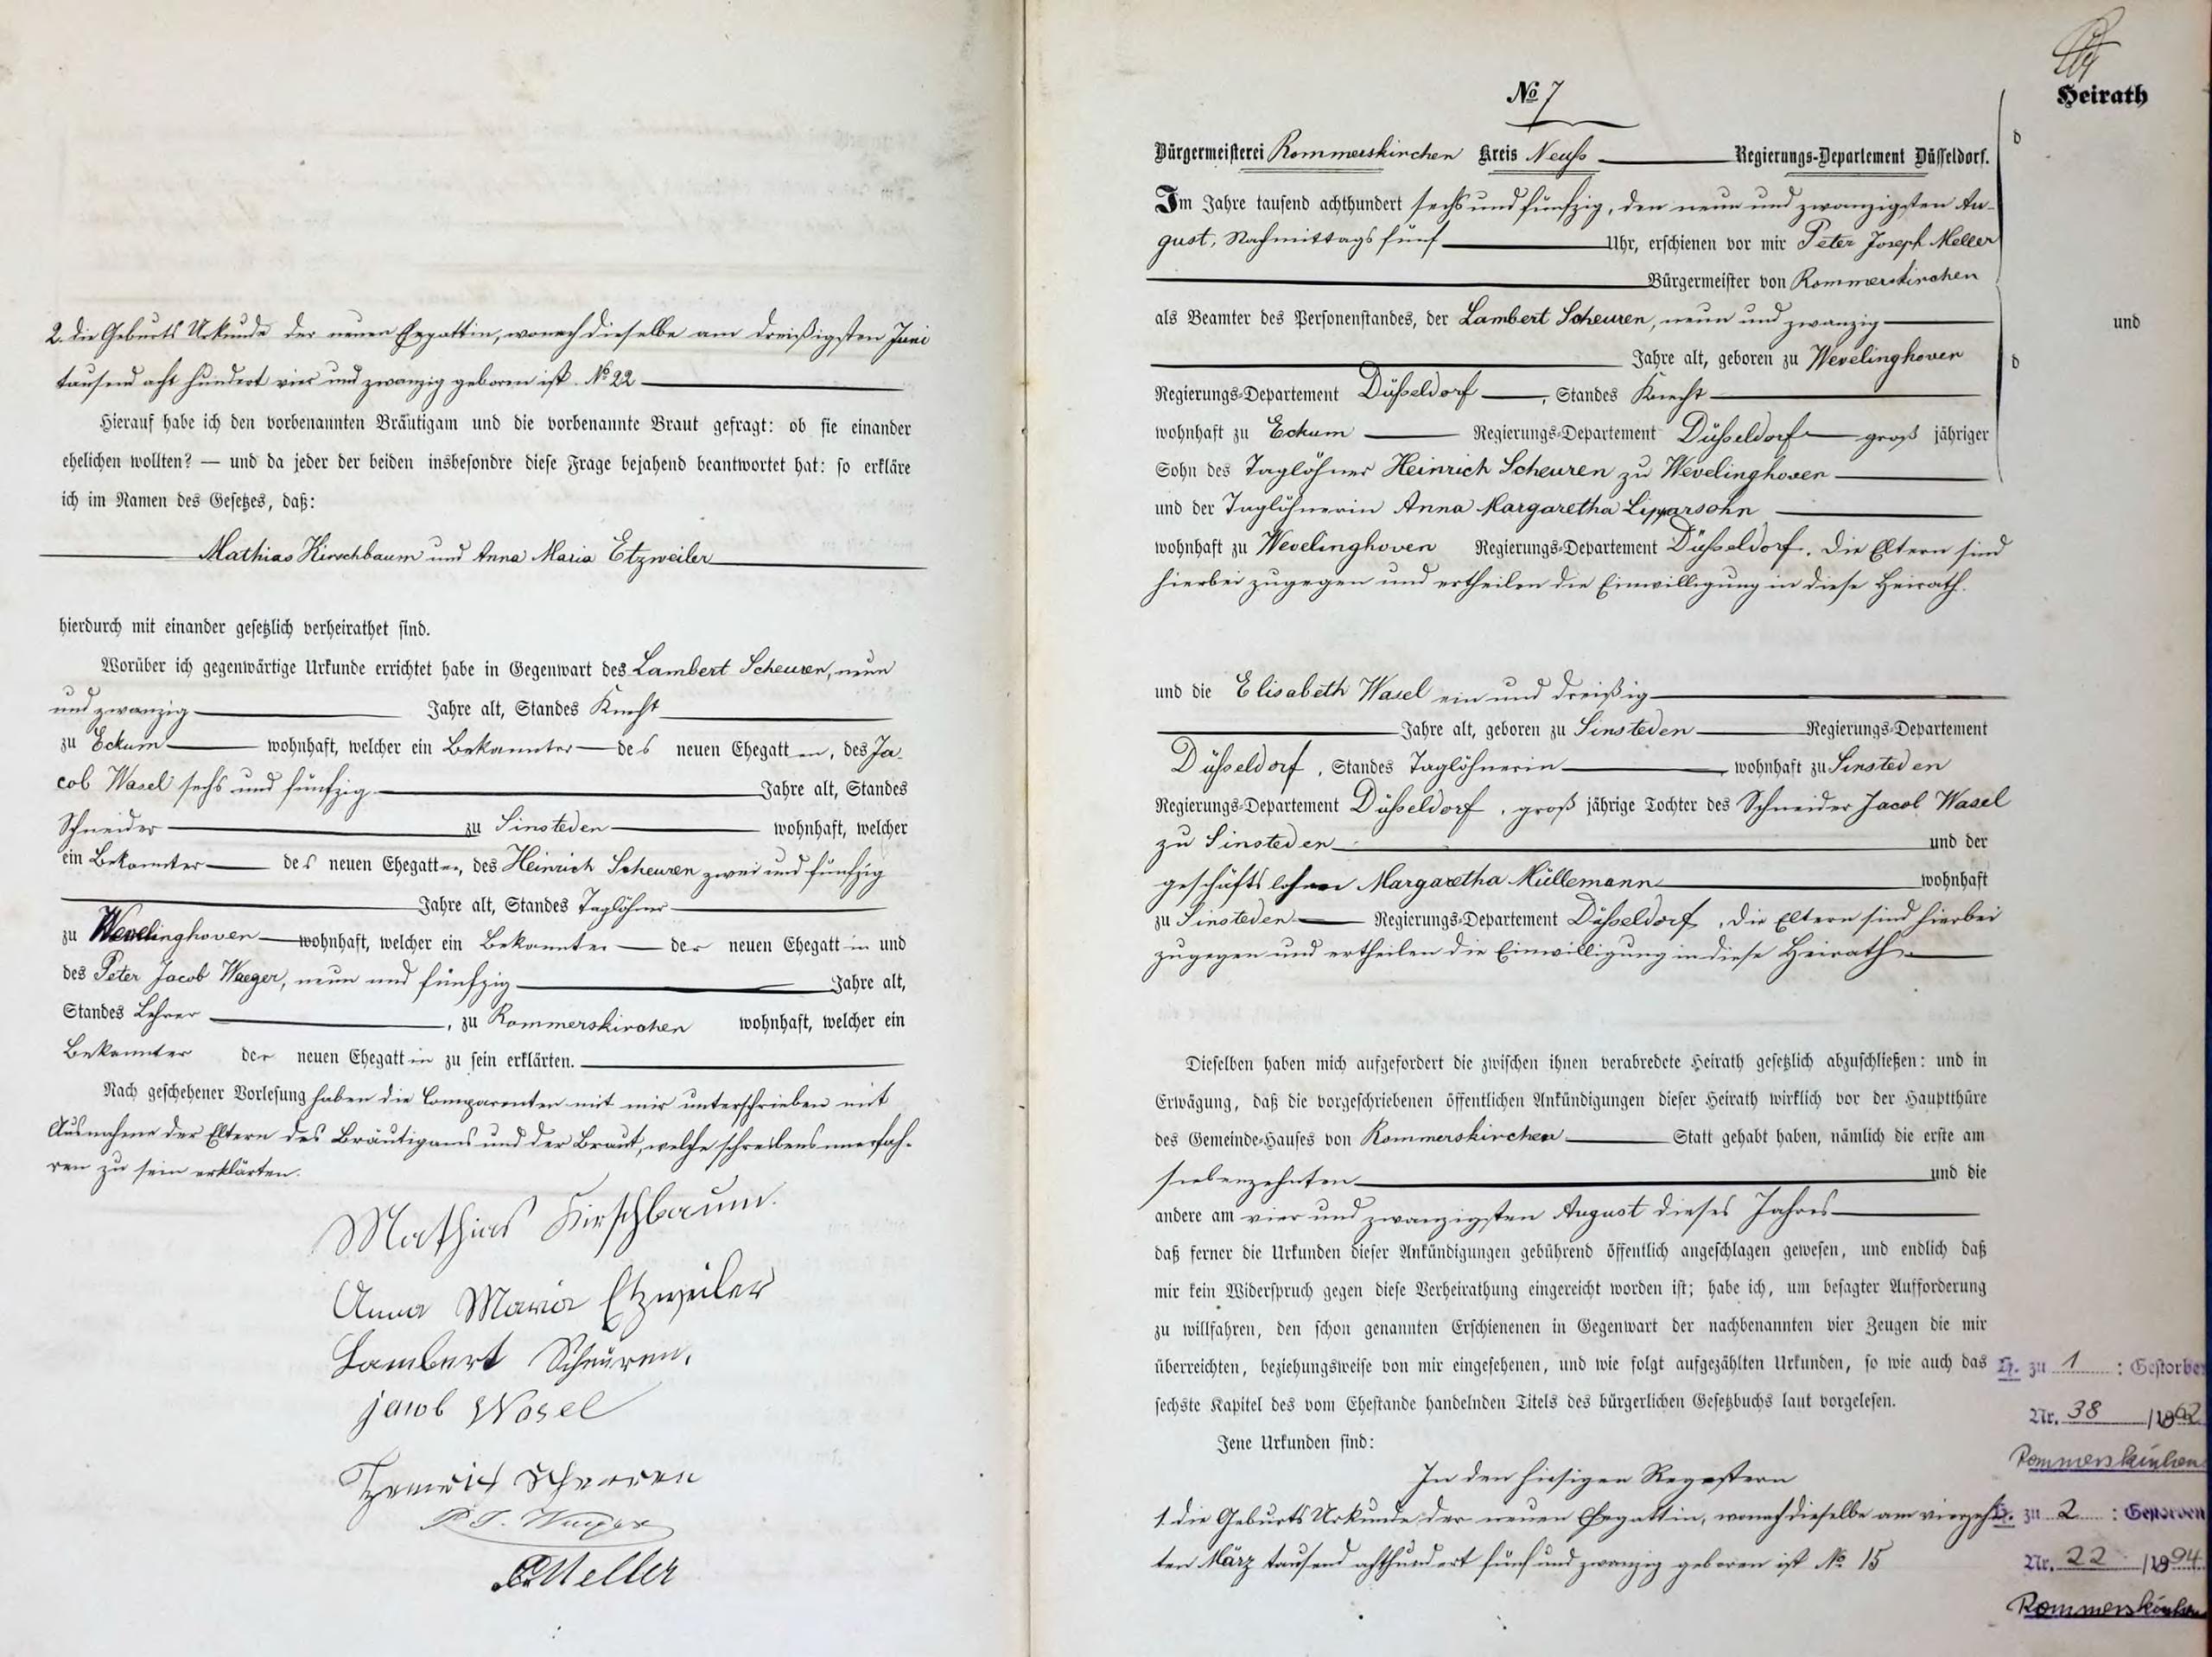 2. die Geburts Urkunde der neuen Ehegattin, wonach dieselbe am dreißigsten Juni
tausend acht hundert vier und zwanzig geboren ist. № 22
Hierauf habe ich den vorbenannten Bräutigam und die vorbenannte Braut gefragt: ob sie einander
ehelichen wollten? — und da jeder der beiden insbesondre diese Frage bejahend beantwortet hat: so erkläre
ich im Namen des Gesetzes, daß:
Mathias Kirschbaum und Anna Maria Etzweiler
hierdurch mit einander gesetzlich verheirathet sind.
Worüber ich gegenwärtige Urkunde errichtet habe in Gegenwart des Lambert Scheuren, neun
und zwanzig Jahre alt, Standes Knecht
zu Eckum wohnhaft, welcher ein Bekannter des neuen Ehegatten, des Ja-
cob Wasel sechs und fünfzig Jahre alt, Standes
Schneider zu Sinsteden wohnhaft, welcher
ein Bekannter des neuen Ehegatten, des Heinrich Scheuren zwei und fünfzig
Jahre alt, Standes Taglöhner
zu Wevelinghoven wohnhaft, welcher ein Bekannter der neuen Ehegattin und
des Peter Jacob Waeger, neun und fünfzig Jahre alt,
Standes Lehrer, zu Rommerskirchen wohnhaft, welcher ein
Bekannter der neuen Ehegattin zu sein erklärten.
Nach geschehener Vorlesung haben die Comparenten mit mir unterschrieben mit
Ausnahme der Eltern des Bräutigams und der Braut, welche schreibensunerfah-
ren zu sein erklärten.
Mathias Kirschbaum.
Anna Maria Etzweiler
Lambert Scheuren.
jacob Wasel
Heinrich Scheuren
P. J. Waeger
Meller
№ 7
Heirath
Bürgermeisterei Rommerskirchen Kreis Neuß Regierungs-Departement Düsseldorf.
Im Jahre tausend achthundert sechs und fünfzig, den neun und zwanzigsten Au-
gust, Nachmittags fünf Uhr, erschienen vor mir Peter Joseph Meller
Bürgermeister von Rommerskirchen
als Beamter des Personenstandes, der Lambert Scheuren, neun und zwanzig
und
Jahre alt, geboren zu Wevelinghoven
Regierungs-Departement Düßeldorf, Standes Knecht
wohnhaft zu Eckum Regierungs-Departement Düßeldorf groß jähriger
Sohn des Taglöhner Heinrich Scheuren zu Wevelinghoven
und der Taglöhnerin Anna Margaretha Lipparsohn
wohnhaft zu Wevelinghoven Regierungs-Departement Düßeldorf. Die Eltern sind
hierbei zugegen und ertheilen die Einwilligung in diese Heirath.
und die Elisabeth Wasel ein und dreißig
Jahre alt, geboren zu Sinsteden Regierungs-Departement
Düßeldorf, Standes Taglöhnerin, wohnhaft zu Sinsteden
Regierungs-Departement Düßeldorf, groß jährige Tochter des Schneider Jacob Wasel
zu Sinsteden und der
geschäftslosen Margaretha Müllemann wohnhaft
zu Sinsteden Regierungs-Departement Düßeldorf, die Eltern sind hierbei
zugegen und ertheilen die Einwilligung in diese Heirath.
Dieselben haben mich aufgefordert die zwischen ihnen verabredete Heirath gesetzlich abzuschließen: und in
Erwägung, daß die vorgeschriebenen öffentlichen Ankündigungen dieser Heirath wirklich vor der Hauptthüre
des Gemeinde-Hauses von Rommerskirchen Statt gehabt haben, nämlich die erste am
siebenzehnten und die
andere am vier und zwanzigsten August dieses Jahres
daß ferner die Urkunden dieser Ankündigungen gebührend öffentlich angeschlagen gewesen, und endlich daß
mir kein Widerspruch gegen diese Verheirathung eingereicht worden ist; habe ich, um besagter Aufforderung
zu willfahren, den schon genannten Erschienenen in Gegenwart der nachbenannten vier Zeugen die mir
überreichten, beziehungsweise von mir eingesehenen, und wie folgt aufgezählten Urkunden, so wie auch das
sechste Kapitel des vom Ehestande handelnden Titels des bürgerlichen Gesetzbuchs laut vorgelesen.
Jene Urkunden sind:
In den hiesigen Registern
1. die Geburts Urkunde der neuen Ehegattin, wonach dieselbe am vierzehn-
ten März tausend achthundert fünf und zwanzig geboren ist № 15
H. zu 1 : Gestorben
Nr. 38 /1862
Rommerskirchen
H. zu 2 : Gestorben
Nr. 22 /1894
Rommerskirchen